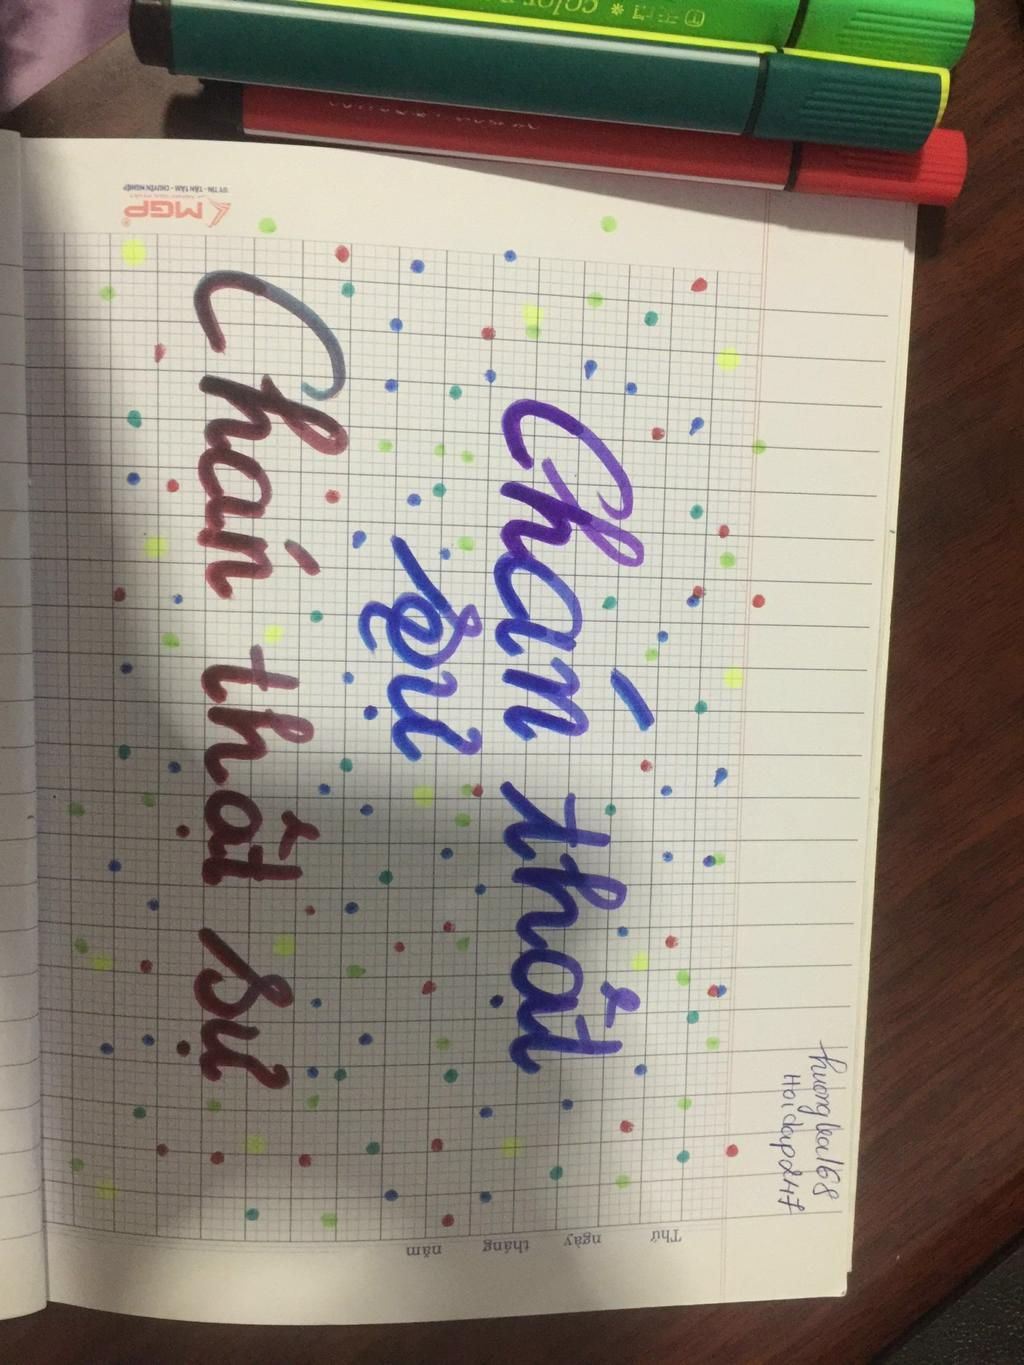 huonglea168
Hoidap247
Chán thật
sự
Chán thật sự
Thứ ngày tháng năm
MGP
UY TÍN - TẬN TÂM - CHUYÊN NGHIỆP